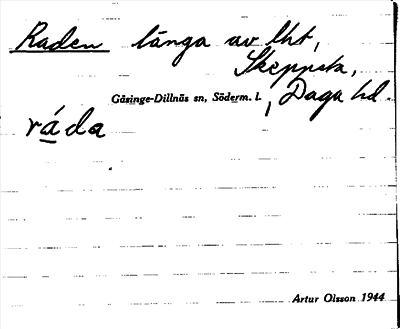 Raden länga av lht,
Skeppsta,
Gåsinge-Dillnäs sn, Söderm. l. , Daga hd
ráda
Artur Olsson 1944